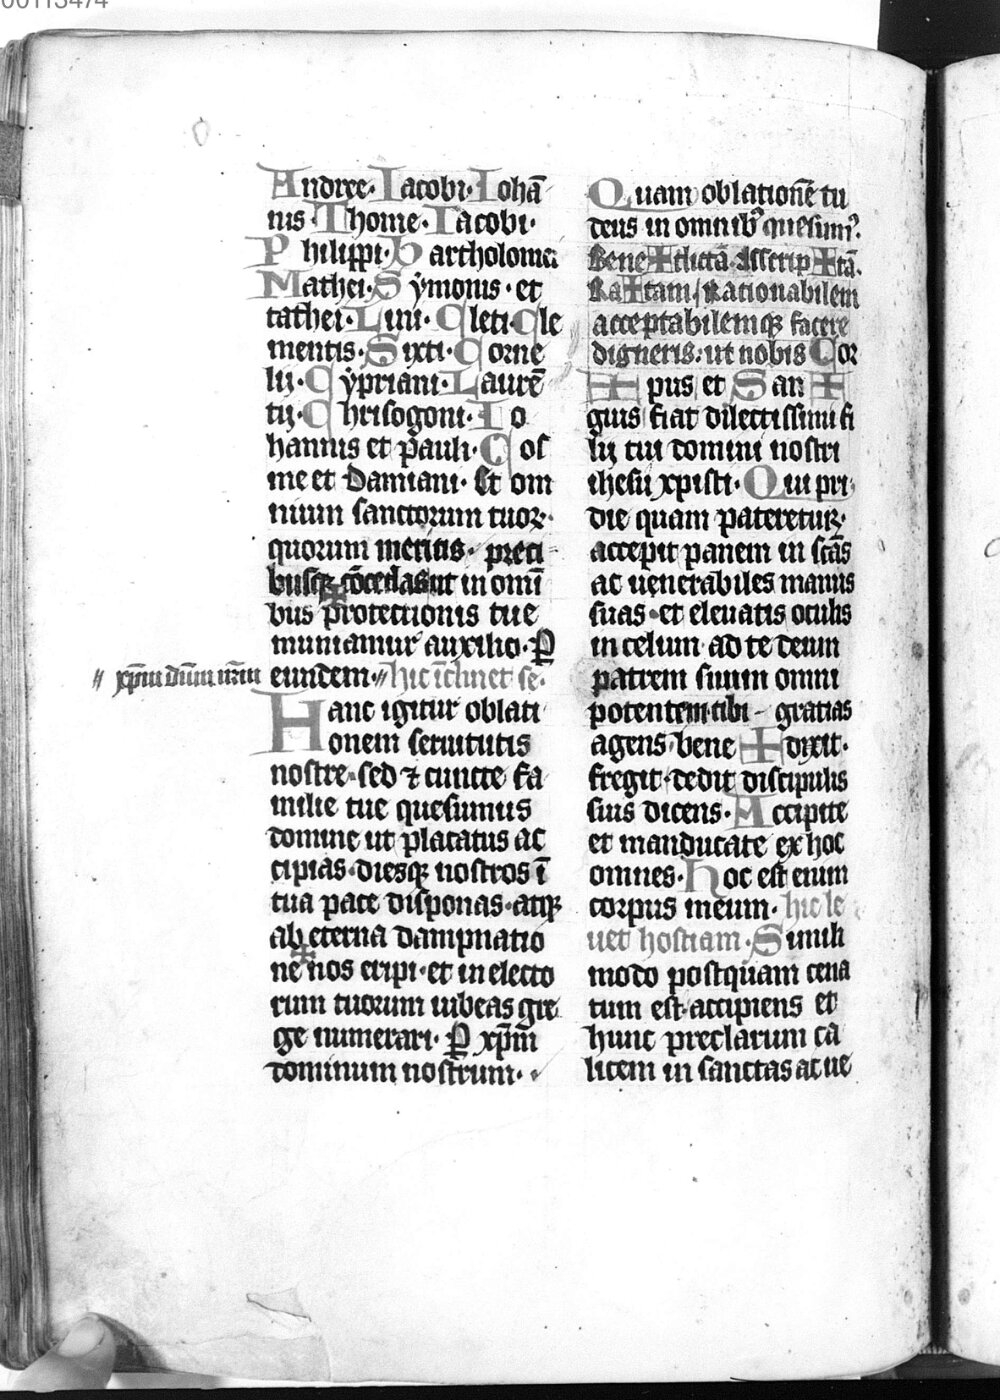 00113474
Andree· Iacobi· Iohā
nis· Thome· Iacobi·
Philippi· Bartholomei
Mathei· Sẏmonis· et
tathei· Lini· Cleti· Cle
mentis· Sixti· Corne
lij· Cẏpriani· Laurē
tij· Chrisogoni· Io
hannis et pauli· Cos
me et Damiani· Et om
nium sanctorum tuoꝝ·
quorum meritis· preci
busqꝫ cōcedas ut in omī
bus protectionis tue
muniamur auxilio· ꝑ
// xp̄m dn̄m nr̄m eundem // hic īclinet se·
Hanc igitur oblati
onem seruitutis
nostre· sed ⁊ cuncte fa
milie tue quesumus
domine ut placatus ac
cipias· diesqꝫ nostros ī
tua pace disponas· atqꝫ
ab eterna dampnatio
ne nos eripi· et in electo
rum tuorum iubeas gre
ge numerari· ꝑ xp̄m
dominum nostrum·
Quam oblationē tu
deus in omnibꝰ quesumꝰ·
Bene✠dictā· Asscrip✠tā·
Ra✠tam / Rationabilem
acceptabilemqꝫ facere
digneris· ut nobis Cor
✠pus et San✠
guis fiat dilectissimi fi
lij tui domini nostri
ihesu xpisti· Qui pri
die quam pateretur·
accepit panem in scās
ac uenerabiles manus
suas· et eleuatis oculis
in celum ad te deum
patrem suum omni
potentem· tibi gratias
agens· bene✠dixit·
fregit· dedit discipulis
suis dicens· Accipite
et manducate ex hoc
omnes· Hoc est enim
corpus meum· hic le
uet hostiam· Simili
modo postquam cena
tum est· accipiens et
hunc preclarum ca
licem in sanctas ac ue